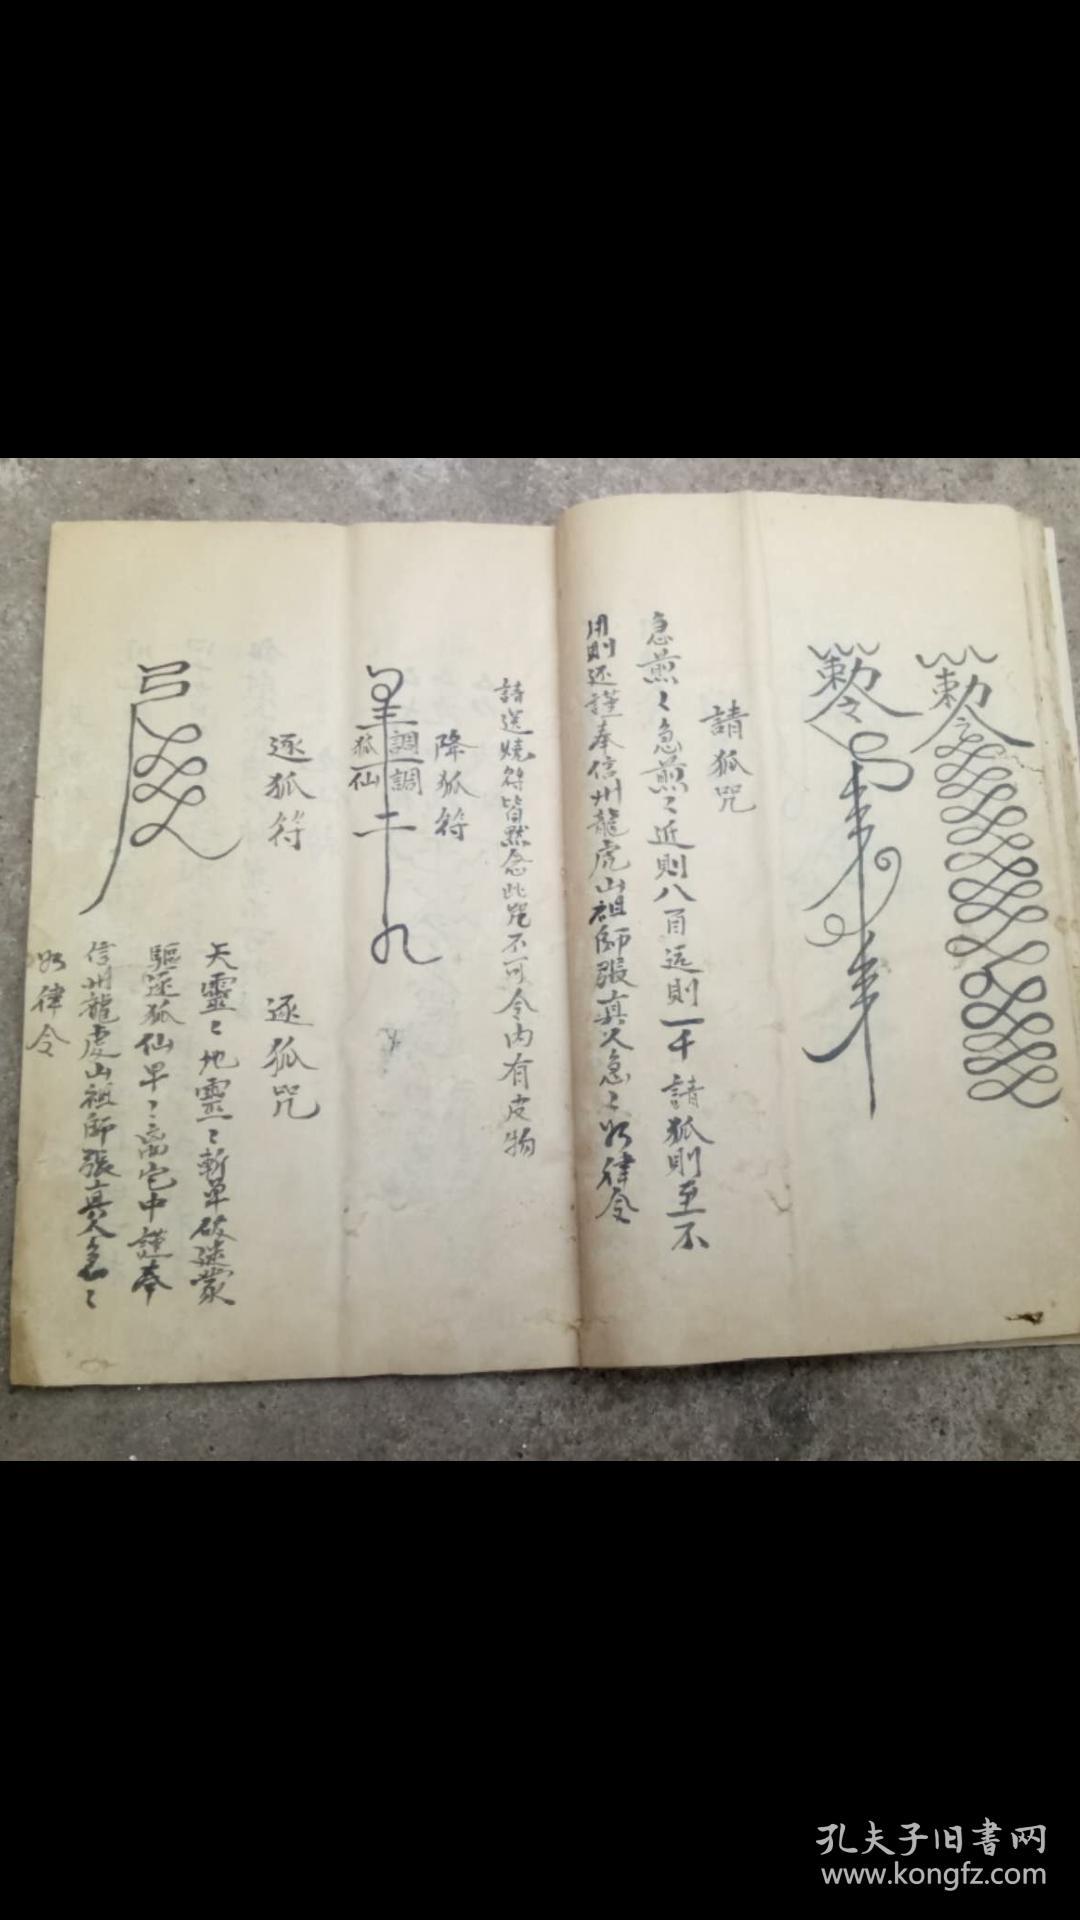 勅令
勅令
請狐咒
急煎〻急煎〻近則八百远則一千請狐則至不
用則还謹奉信州龍虎山祖師張真人急〻如律令
請送燒符皆默念此咒不可令内有皮物
降狐符
調調
狐仙
逐狐符
逐狐咒
天靈〻地靈〻斬單破迷蒙
驅逐狐仙早〻离宅中謹奉
信州龍虎山祖師張真人急〻
如律令
孔夫子旧書网
www.kongfz.com